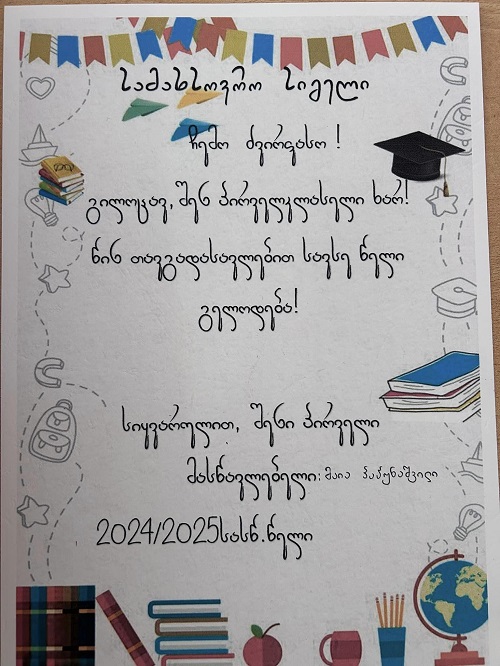 სამახსოვრო სიგელი
ჩემო ძვირფასო !
გილოცავ, შენ პირველკლასელი ხარ!
წინ თავგადასავლებით სავსე წელი
გელოდება!
სიყვარულით, შენი პირველი
მასწავლებელი: მაია პაპუნაშვილი
2024/2025სასწ.წელი